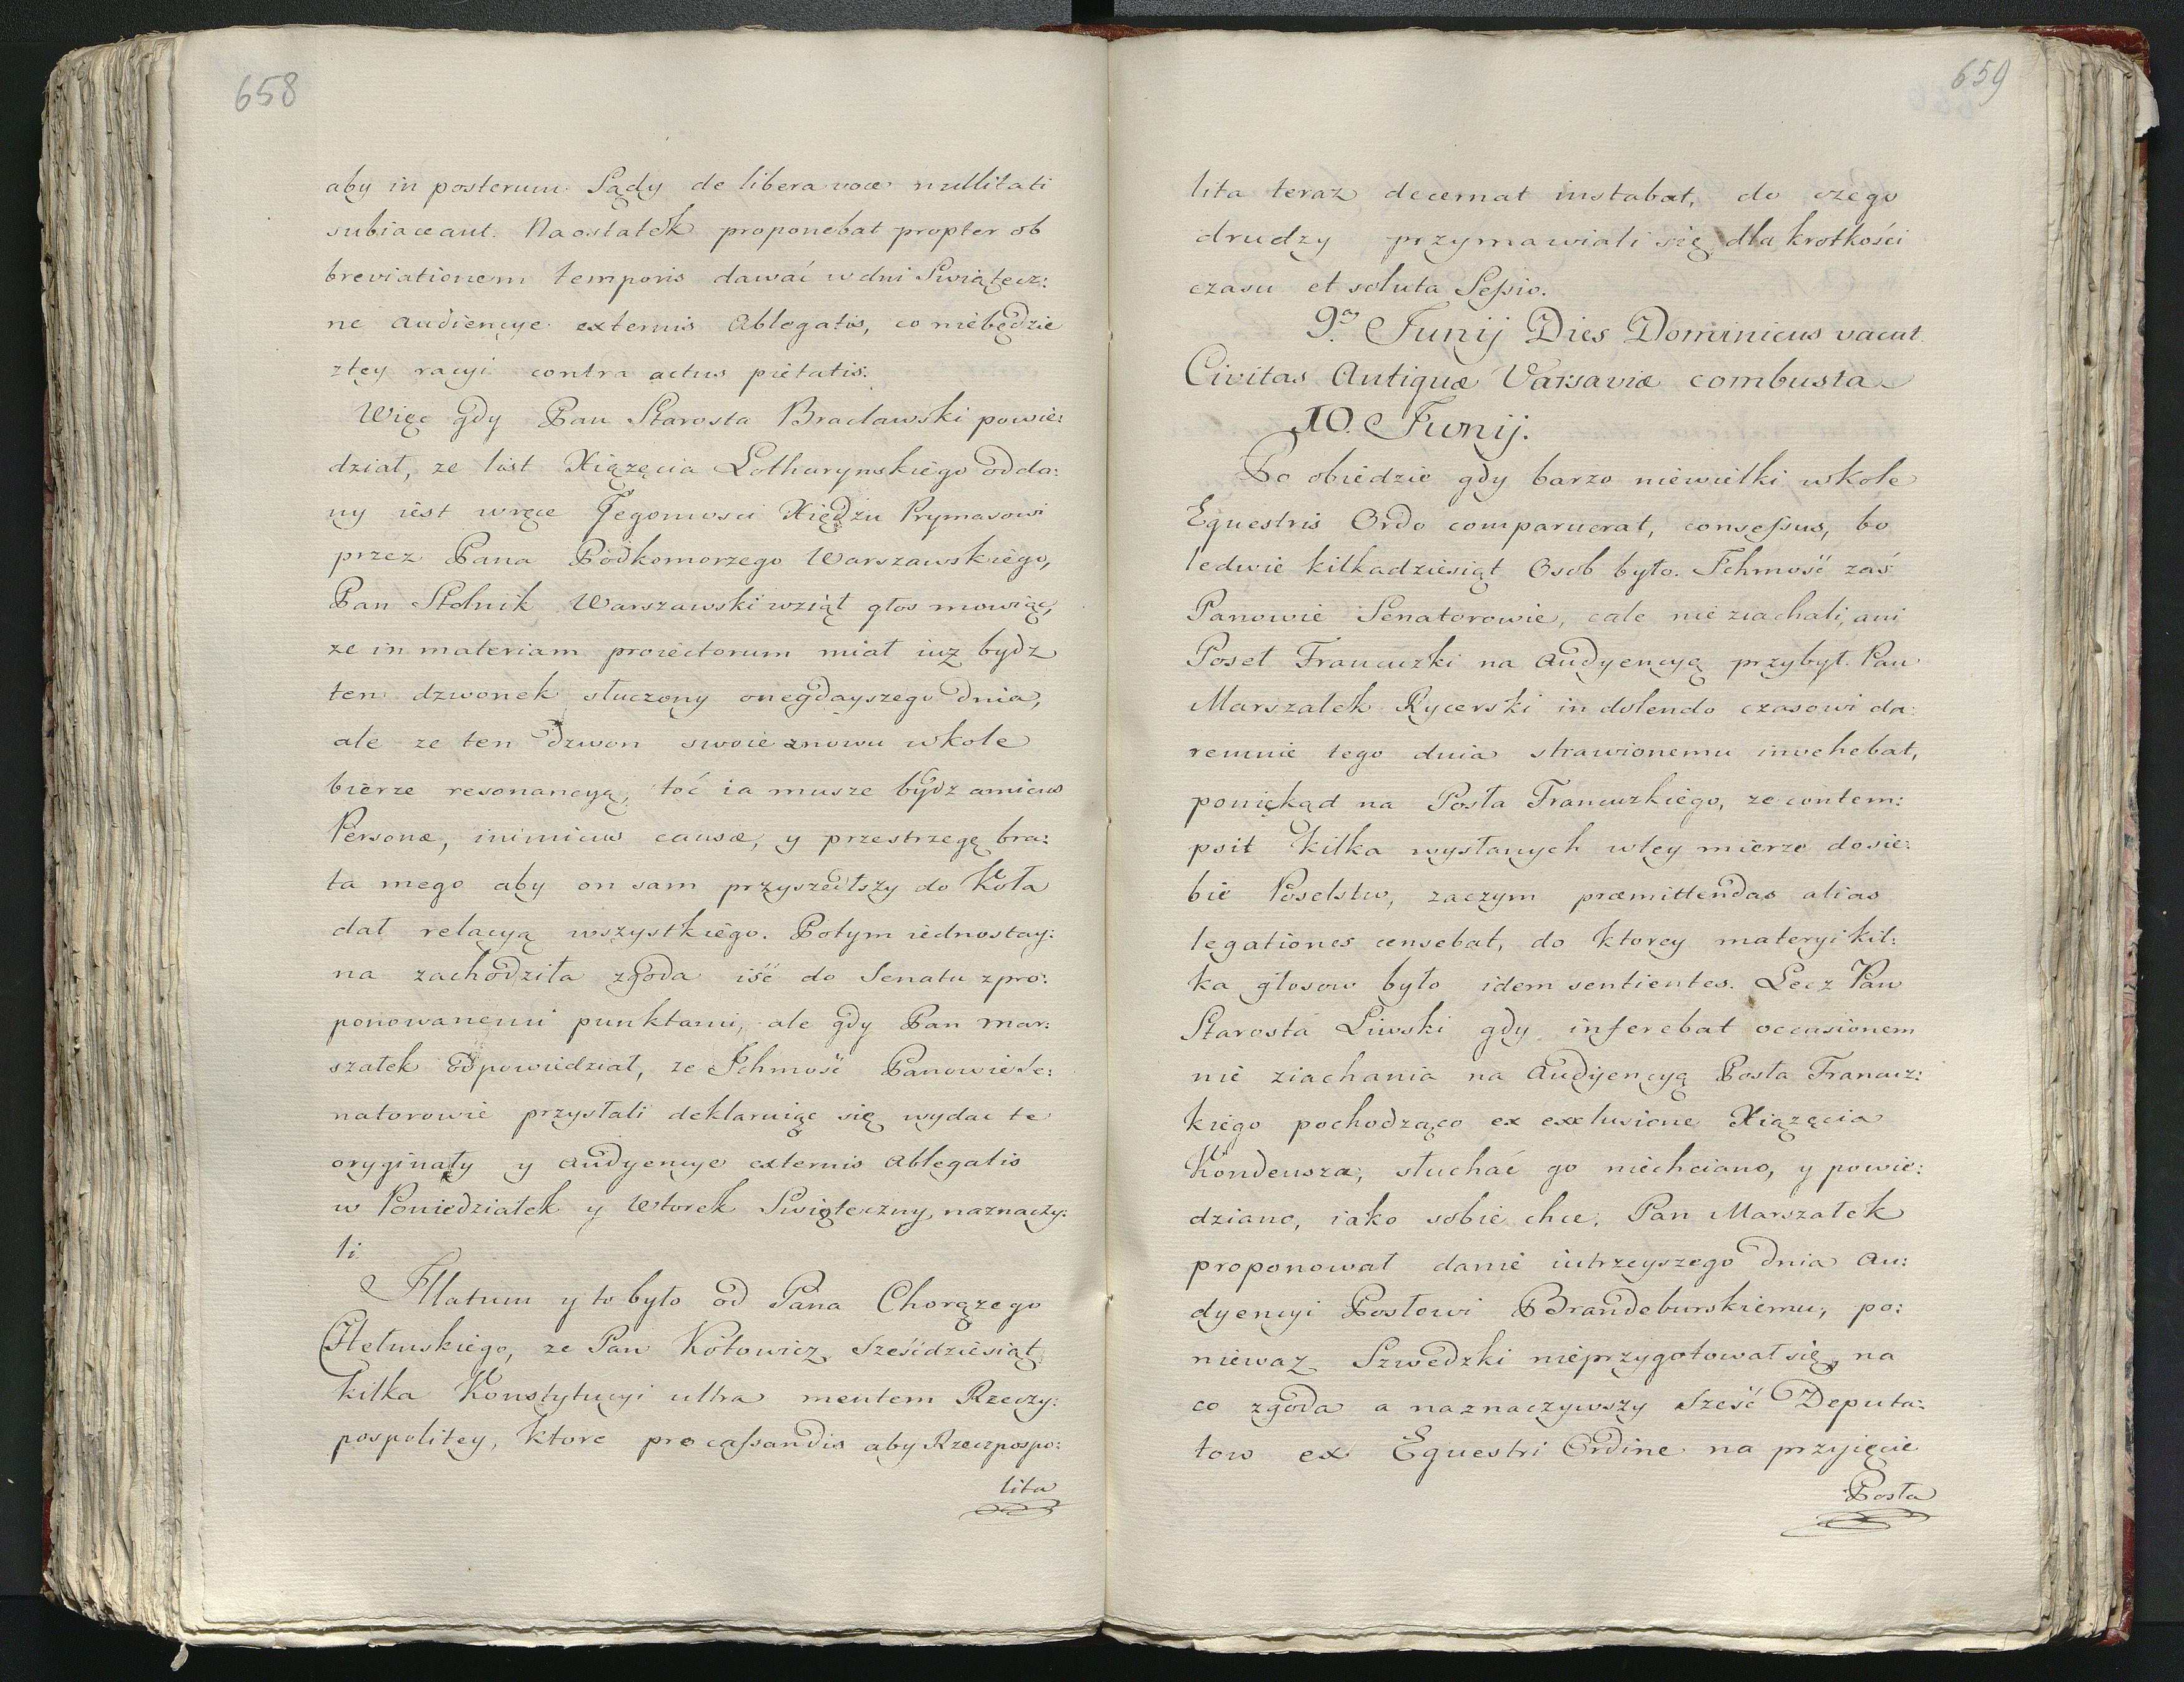 658
aby in posterum Sądy de libera voce nullitati
subiaceant. Naostatek proponebat propter ob
breviationem temporis dawać w dni Swiątecz:
ne audiencye externis Ablegatis, co niebędzie
ztey racyi contra actus pietatis.
Więc gdy Pan Starosta Bracławski powie:
dział, ze list Xiązęcia Lotharynskiego odda:
ny iest wręce Jegomosci Xiędzu Prymasowi
przez Pana Podkomorzego Warszawskiego,
Pan Stolnik Warszawski wziął głos mowiąc,
ze in materiam proiectorum miał iuz bydz
ten dzwonek stuczony onegdayszego dnia,
ale ze ten dzwon swoie znowu wkole
bierze resonancyą, toć ia musze bydz amicus
Personæ, inimicus causæ, y przestrzegę bra:
ta mego aby on sam przyszedłszy do Koła
dał relacyą wszystkiego. Potym iednostay:
na zachodziła zgoda iść do Senatu zpro:
ponowanemi punktami, ale gdy Pan Mar:
szałek odpowiedział, ze Ichmość Panowie Se:
natorowie przystali deklaruiąc się wydac te
oryginały y audyencye externis Ablegatis
w Poniedziałek y Wtorek Swiąteczny naznaczy:
li.
Illatum y to było od Pana Chorązego
Chełmskiego, ze Pan Kotowicz Sześćdziesiąt
kilka Konstytucyi ultra mentem Rzeczy:
pospolitey, ktore pro cassandis aby Rzeczpospo:
lita
659
lita teraz decernat instabat, do czego
drudzy przymawiali się dla krotkości
czasu et soluta Sessio.
9a. Junij Dies Dominicus vacat.
Civitas Antiquæ Varsaviæ combusta
10. Junij.
Po obiedzie gdy barzo niewielki wkole
Equestris Ordo comparuerat, consessus, bo
ledwie kilkadziesiąt Osob było. Ichmość zaś
Panowie Senatorowie, cale nie ziachali, ani
Poseł Francuzki na audyencyą przybył. Pan
Marszałek Rycerski in dolendo czasowi da:
remnie tego dnia strawionemu invehebat,
poniękąd na Posła Francuzkiego, ze contem:
psit kilka wysłanych wtey mierze do sie:
bie Poselstw, zaczym præmittendas alias
legationes censebat, do ktorey materyi kil:
ka głosow było idem sentientes. Lecz Pan
Starosta Liwski gdy inferebat occasionem
nie ziachania na Audyencyą Posła Francuz:
kiego pochodząco ex exclusione Xiązęcia
Kondeusza, słuchać go niechciano, y powie:
dziano, iako sobie chce. Pan Marszałek
proponował danie iutrzeyszego dnia Au:
dyencyi Posłowi Brandeburskiemu, po:
niewaz Szwedzki nieprzygotował się, na
co zgoda a naznaczywszy sześć Deputa:
tow ex Equestri Ordine na przyięcie
Posła